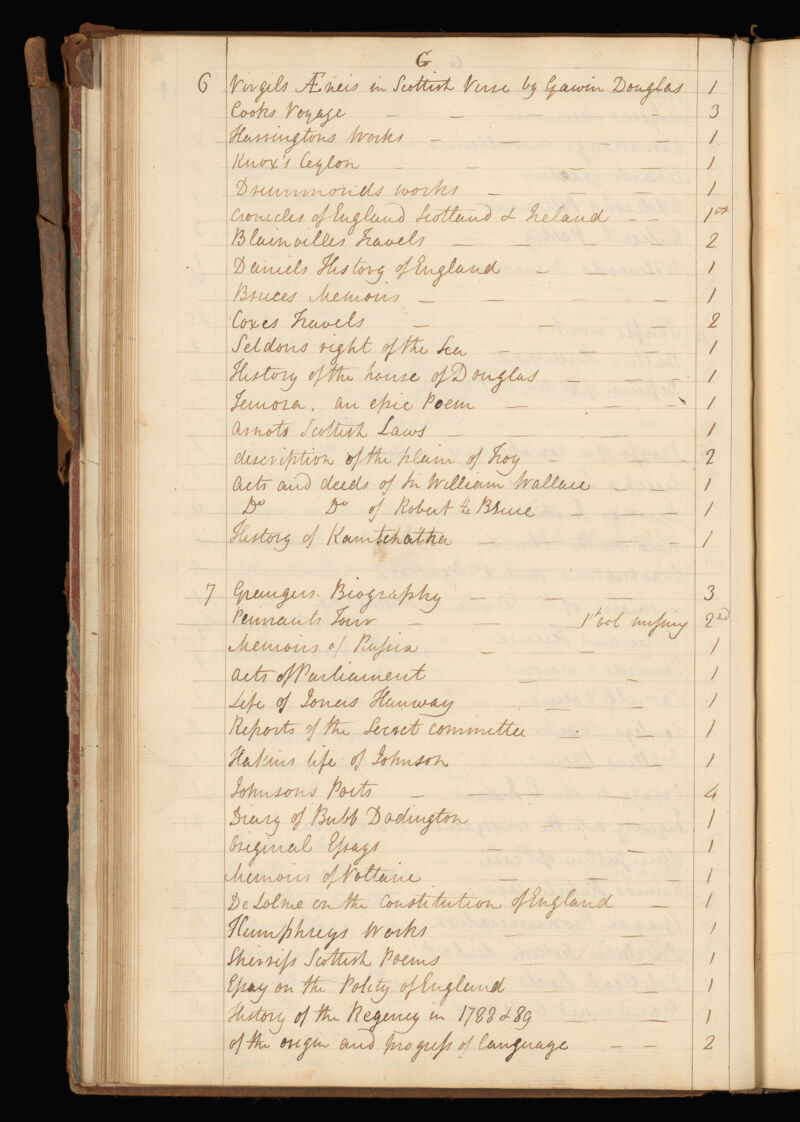 G
6 Virgils Æneis in Scottish Verse by Gawin Douglas 1
Cooks Voyage - - - 3
Harringtons Works - - - 1
Knox's Ceylon - - - 1
Drummonds works - - - 1
Cronicles of England Scotland & Ireland - - 1st
Blainvilles Travels - - - 2
Daniels History of England - - 1
Bruces Memoirs - - - 1
Coxes Travels - - - 2
Seldons right of the Sea - - - 1
History of the house of Douglas - - 1
Temora. an epic Poem - - - 1
Arnots Scottish Laws - - - 1
description of the plain of Troy - - - 2
Acts and deeds of Sir William Wallace - - 1
Do Do of Robert the Bruce - - - 1
History of Kamtchatka - - - 1
7 Grangers Biography - - - 3
Pennants Tour - - 1st vol missing 2nd
Memoirs of Russia - - - 1
Acts of Parliament - - - 1
Life of Jonas Hanway - - - 1
Reports of the Secret Committee - - 1
Hakins life of Johnson - - 1
Johnsons Poets - - - 4
Diary of Bubb Dodington - - 1
Original Essays - - - 1
Memoirs of Voltaire - - - 1
De Lolme on the Constitution of England - 1
Humphreys Works - - - 1
Sherrifs Scottish Poems - - 1
Essay on the Polity of England - - 1
History of the Regency in 1788 & 89 - - 1
of the origin and progress of language - - 2